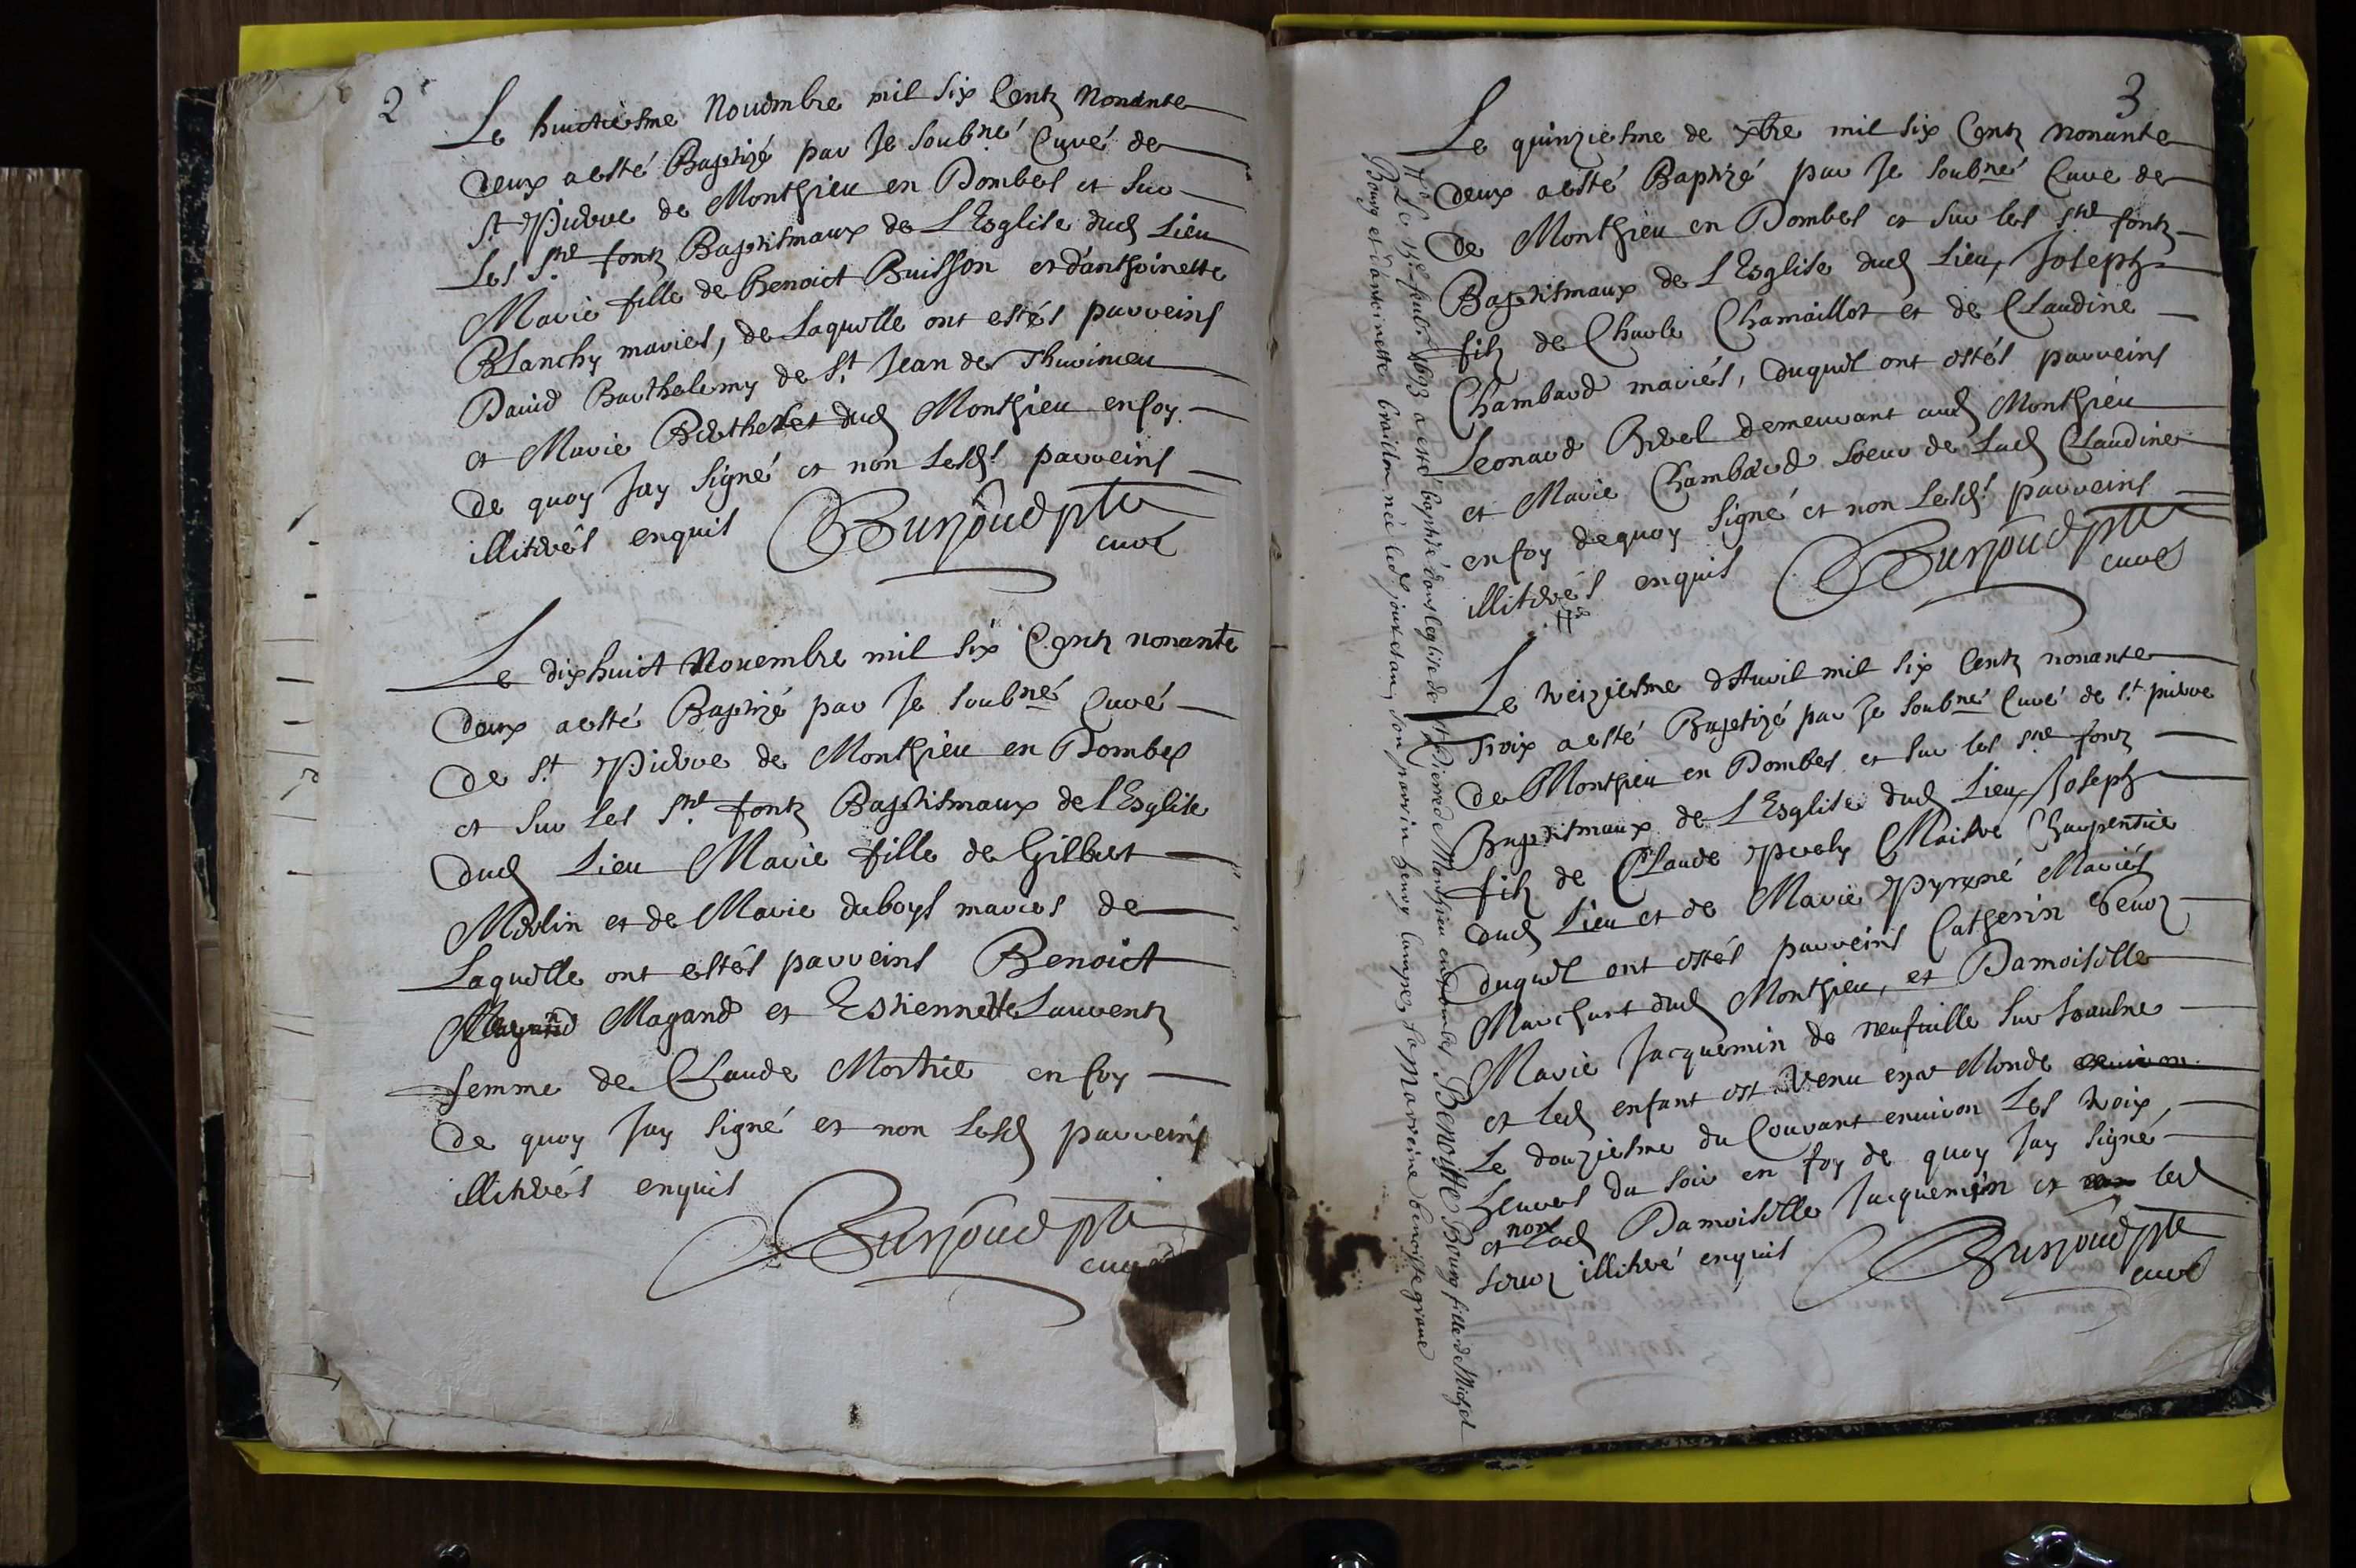 2
Le huictiesme Novembre mil six Centz Nonante
deux a esté Baptizé par Je soub.né Curé de
S.t Pierre de Monthieu en Dombes et sur
Les S.tes fontz Baptismaux de L'Esglise dud Lieu
Marie fille de Benoict Buisson et d'anthoinette
Blanchy mariés, de Laquelle ont estés parreins
David Barthelemy de S.t Jean de Thurineu
et Marie Berthelet dud Monthieu en foy
de quoy Jay signé et non Lesd.s parreins
illiterés enquis Burjoud ptre
curé
Le dixhuict Novembre mil six Centz nonante
deux a esté Baptizé par Je soub.né Curé
de S.t Pierre de Monthieu en Dombes
et sur Les S.tes fontz Baptismaux de l'Esglise
dud Lieu Marie fille de Gilbert
Merlin et de Marie duboys mariés de
Laquelle ont estés parreins Benoict
Magand et Estiennette Laurentz
femme de Claude Mortier en foy
de quoy Jay signé et non Lesd parreins
illiterés enquis
Burjoud ptre
curé
3
Le quinziesme de xbre mil six Centz nonante
deux a esté Baptizé par Je soub.né Curé de
de Monthieu en Dombes et sur les S.tes fontz
Baptismaux de L'Esglise dud Lieu, Joseph
filz de Charle Chamaillot et de Claudine
Chambard mariés, duquel ont estés parreins
Leonard Brel demeurant aud Monthieu
et Marie Chambard soeur de Lad Claudine
en foy de quoy signé et non Lesd.s parreins
illiterés enquis Burjoud ptre
curé
Le treiziesme d'Avril mil six Centz nonante
Troix a esté Baptizé par Je soub.né Curé de S.t pierre
de Monthieu en Dombes et sur les S.tes fontz
Baptismaux de L'Esglise dud Lieu, Joseph
filz de Claude Prely Maistre Charpentier
dud Lieu et de Marie Pyroné Mariés
duquel ont estés parreins Catherin Seroz
Marchant dud Monthieu, et Damoiselle
Marie Jacquemin de neufville sur Soaulne
et led enfant est venu en ce Monde environ
Le douziesme du Courant environ Les troix
heures du soir en foy de quoy Jay signé
et Lad Damoiselle Jacquemin et non led
Seroz illiteré enquis Burjoud ptre
curé
Le 15.e feuvr. 1693 a esté baptisé dans leglise de st Pierre de Monthieu en dombes Benoiste Bourg fille de Michel
Bourg et dantoinette née led jour et an, son parrin henry la marrine benoiste grane